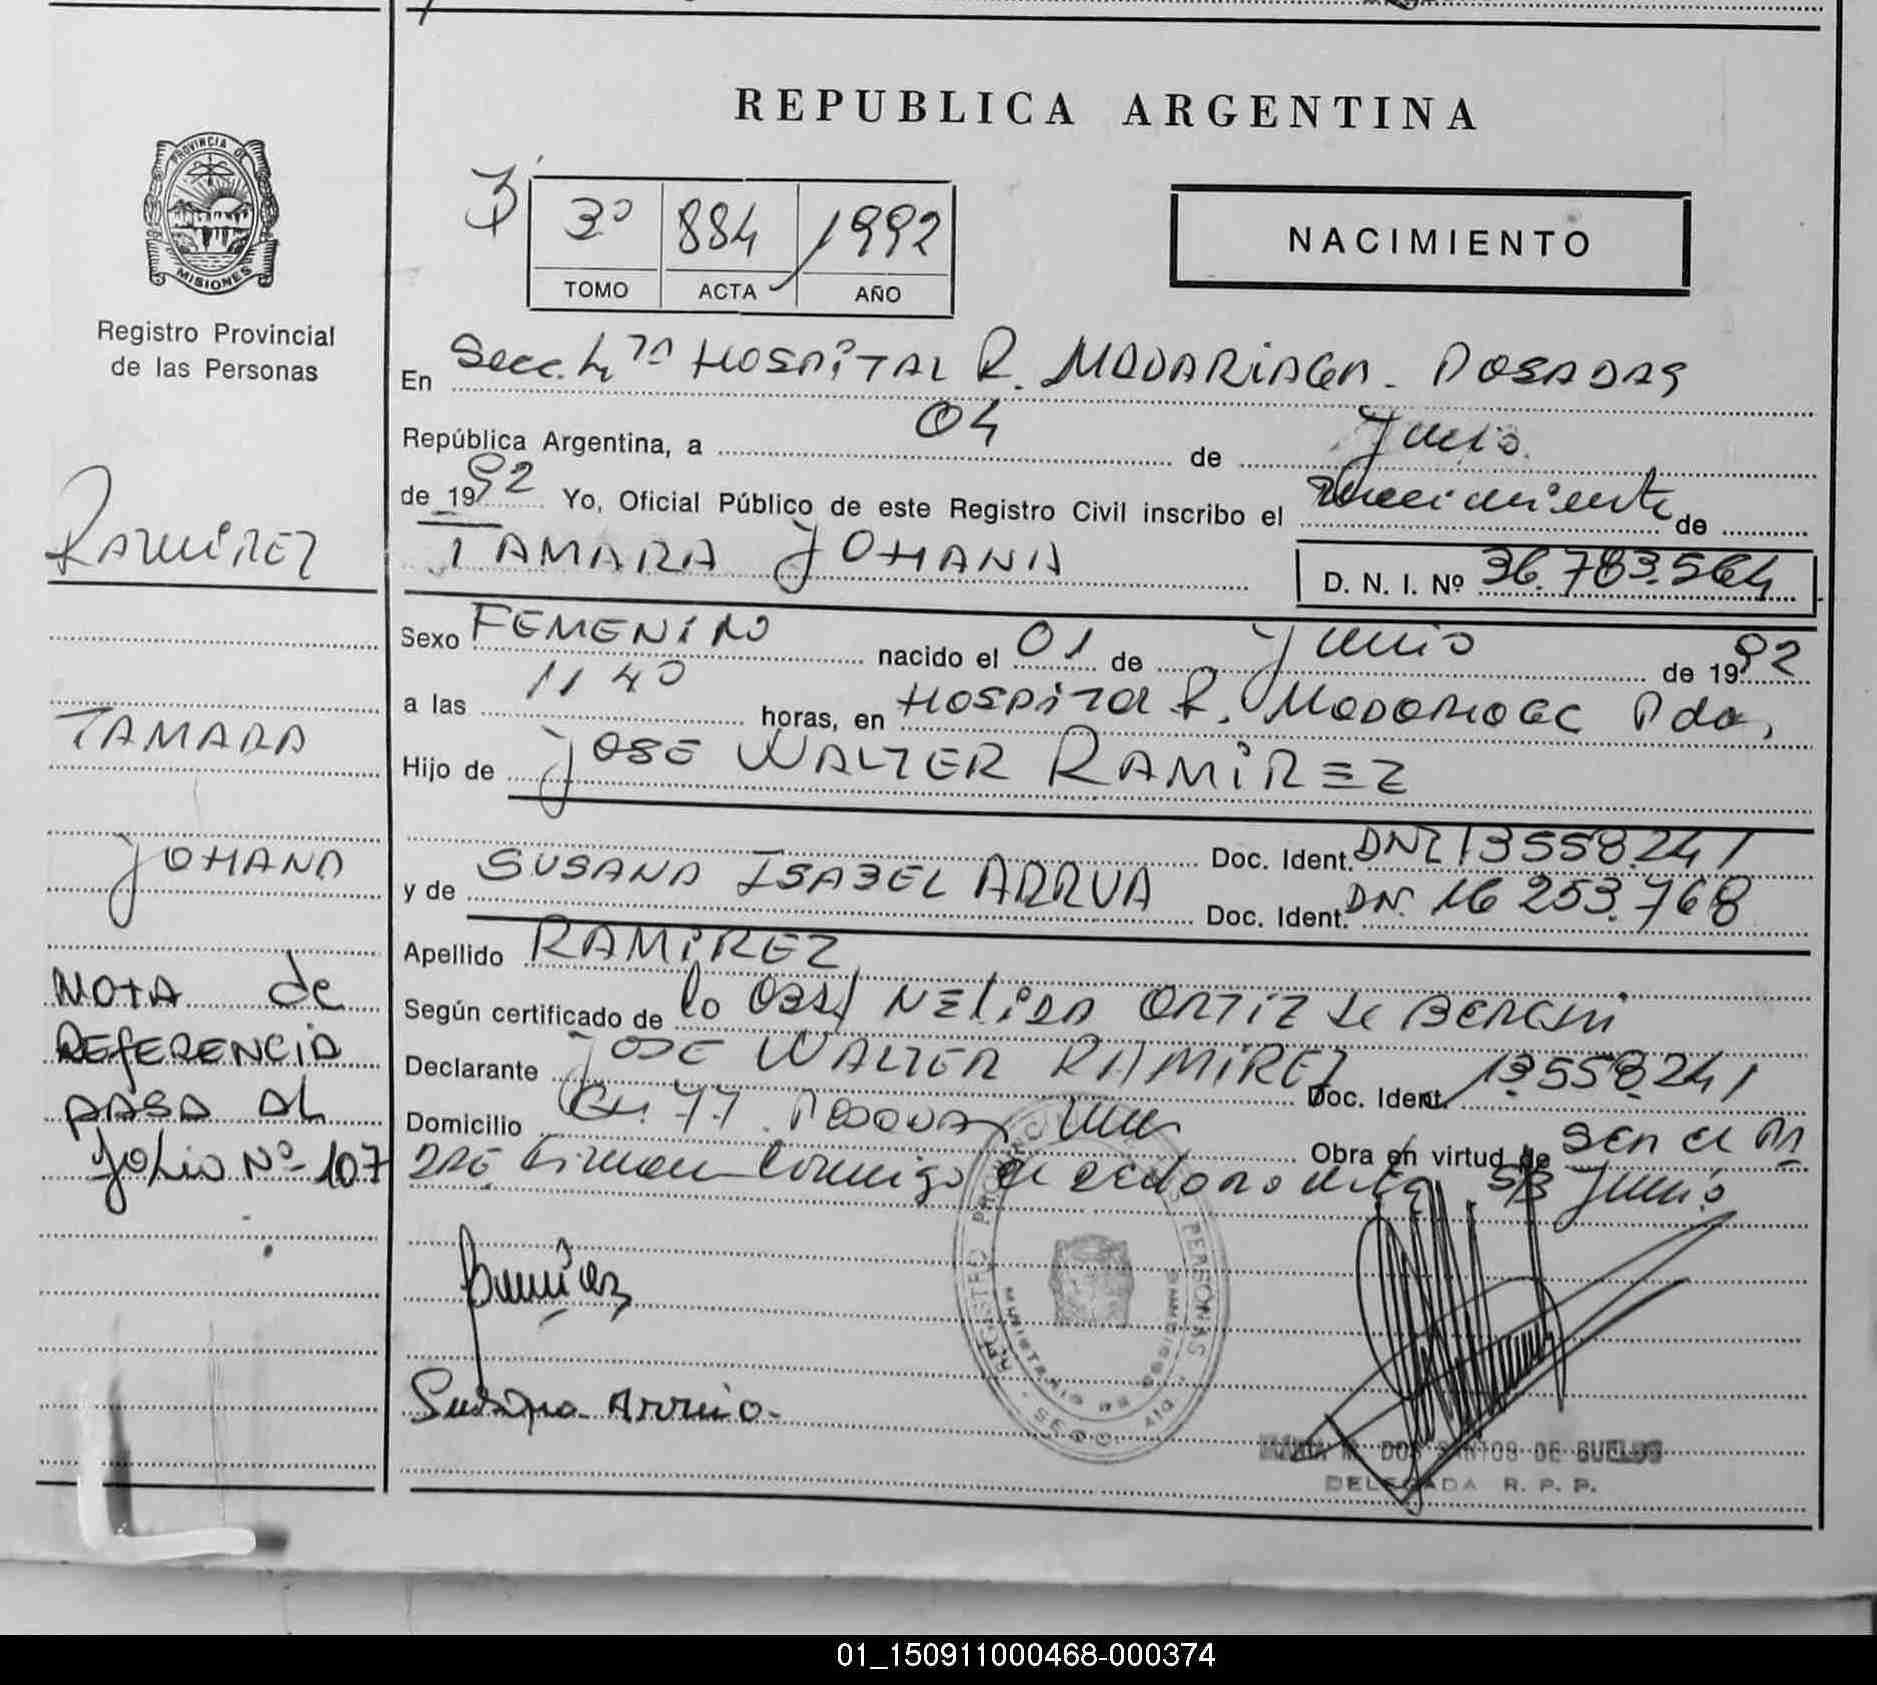 REPUBLICA ARGENTINA
PROVINCIA DE
MISIONES
Registro Provincial
de las Personas
3º 884 1992
TOMO ACTA AÑO
NACIMIENTO
En Secc. 4ta HOSPITAL R. MADARIAGA. POSADAS
República Argentina, a 04 de Junio
de 1992 Yo, Oficial Público de este Registro Civil inscribo el nacimiento de
TAMARA JOHANA D. N. I. Nº 36.783.564
Sexo FEMENINO nacido el 01 de Junio de 1992
a las 11 40 horas, en Hospital R. Madariaga Pdas,
Hijo de JOSE WALTER RAMIREZ
Doc. Ident. DNI 13558241
y de SUSANA ISABEL ARRUA Doc. Ident. DNI. 16 253.768
Apellido RAMIREZ
Según certificado de la Obst NELIDA ORTIZ de
Declarante JOSE WALTER RAMIREZ Doc. Ident. 13558241
Domicilio Ch. 77 Posadas Obra en virtud de ser el pa
dre. Firman conmigo Junio
RAMIREZ
TAMARA
JOHANA
NOTA de
REFERENCIA
PASA AL
folio Nº 107
Ramirez
Susana Arrua
REGISTRO PERSONAS
DOS SANTOS DE BUELOS
DELEGADA R. P. P.
01_150911000468-000374